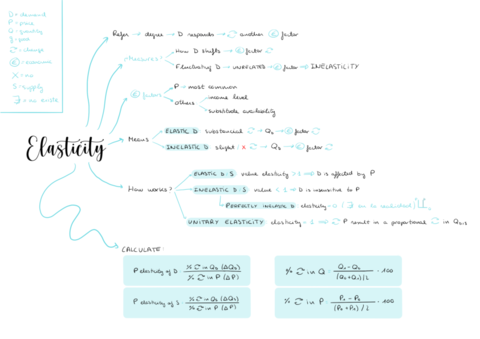 D = demand
P = price
Q = quantity
= change
€ = economic
X = no
S = supply
Refers → degree → D responds → another € factor
Measures
How D shifts → € factor
Fluctuating D → UNRELATED → € factor → INELASTICITY
€ factors
P → most common
Others
income level
substitute availability
Elasticity
Means
ELASTIC D substantial → Q → € factor
INELASTIC D slight / X → Q → € factor
How works?
ELASTIC D/S value elasticity > 1 → D is affected by P
INELASTIC D/S value < 1 → D is insensitive to P
PERFECTLY INELASTIC D elasticity = 0
UNITARY ELASTICITY elasticity = 1 → P result in a proportional in Q
CALCULATE:
P elasticity of D = % in Q (ΔQ) / % in P (ΔP)
% in Q = / 2 · 100
P elasticity of S = % in Q (ΔQ) / % in P (ΔP)
% in P = / 2 · 100